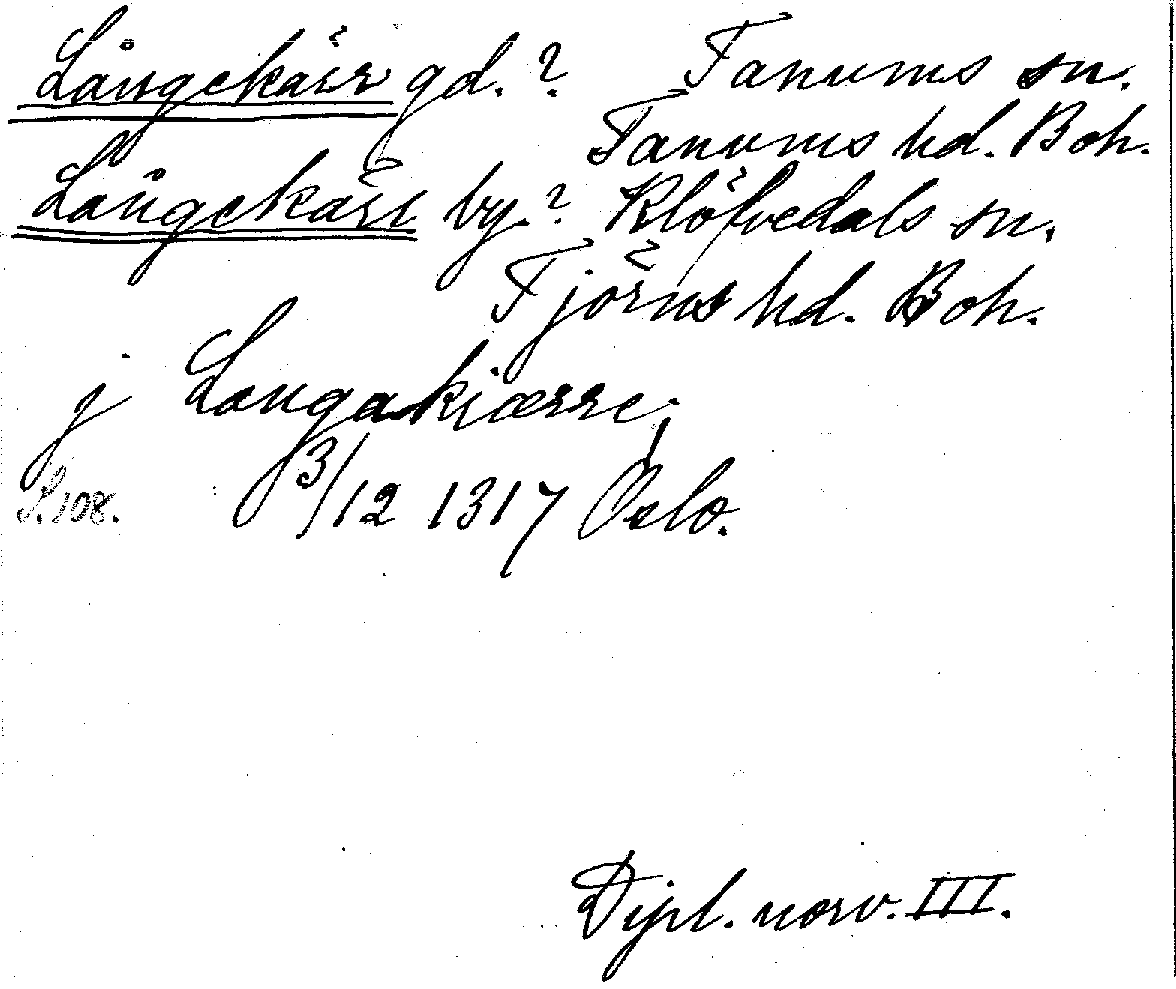 Långekärr gd.? Tanums sn.
Tanums hd. Boh.
Långekärr by.? Klöfvedals sn.
Tjörns hd. Boh.
j Langakiærre,
S.108. 3/12 1317 Oslo.
Dipl. norv. III.